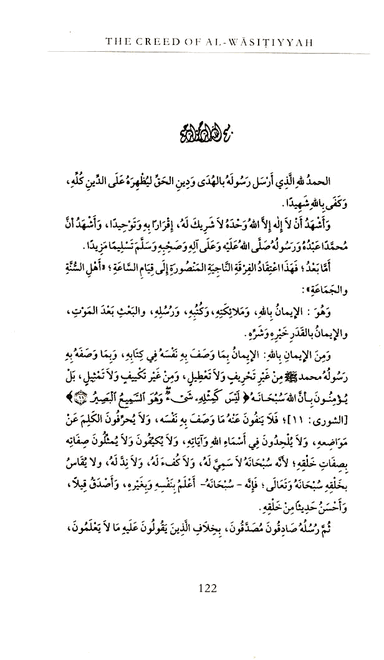 THE CREED OF AL-WĀSIṬIYYAH
الحمدُ للهِ الَّذِي أَرْسَلَ رَسُولَهُ بالهُدَى وَدِينِ الحَقِّ لِيُظْهِرَهُ عَلَى الدِّينِ كُلِّهِ،
وَكَفَى بِاللهِ شَهِيدًا.
وَأَشْهَدُ أَنْ لاَ إِلٰهَ إِلاَّ اللهُ وَحْدَهُ لاَ شَرِيكَ لَهُ، إِقْرَارًا بِهِ وَتَوْحِيدًا، وَأَشْهَدُ أَنَّ
مُحَمَّدًا عَبْدُهُ وَرَسُولُهُ صَلَّى اللهُ عَلَيْهِ وَعَلَى آلِهِ وَصَحْبِهِ وَسَلَّمَ تَسْلِيمًا مَزِيدًا.
أَمَّا بَعْدُ؛ فَهَذَا اعْتِقَادُ الفِرْقَةِ النَّاجِيَةِ المَنْصُورَةِ إِلَى قِيَامِ السَّاعَةِ؛ «أَهْلِ السُّنَّةِ
والجَمَاعَةِ»:
وَهُوَ : الإِيمانُ بِاللهِ، وَمَلاَئِكَتِهِ، وَكُتُبِهِ، وَرُسُلِهِ، والبَعْثِ بَعْدَ المَوْتِ،
والإِيمانُ بالقَدَرِ خَيْرِهِ وَشَرِّهِ.
وَمِنَ الإيمانِ بِاللهِ: الإيمَانُ بِمَا وَصَفَ بِهِ نَفْسَهُ فِي كِتَابِهِ، وَبِمَا وَصَفَهُ بِهِ
رَسُولُهُ محمد ﷺ مِنْ غَيْرِ تَحْرِيفٍ وَلاَ تَعْطِيلٍ، وَمِنْ غَيْرِ تَكْيِيفٍ وَلاَ تَمْثِيلٍ، بَلْ
يُؤْمِنُونَ بِأَنَّ اللهَ سُبْحَانَهُ ﴿ لَيْسَ كَمِثْلِهِ شَيْءٌ وَهُوَ السَّمِيعُ الْبَصِيرُ ﴾
[الشورى: ١١]؛ فَلاَ يَنْفُونَ عَنْهُ مَا وَصَفَ بِهِ نَفْسَهُ، وَلاَ يُحرِّفُونَ الكَلِمَ عَنْ
مَوَاضِعِهِ، وَلاَ يُلْحِدُونَ فِي أَسْمَاءِ اللهِ وَآيَاتِهِ، وَلاَ يُكَيِّفُونَ وَلاَ يُمثِّلُونَ صِفَاتِهِ
بِصِفَاتِ خَلْقِهِ؛ لأنَّهُ سُبْحَانَهُ لاَ سَمِيَّ لَهُ، وَلاَ كُفْءَ لَهُ، وَلاَ نِدَّ لَهُ، ولا يُقَاسُ
بخَلْقِهِ سُبْحَانَهُ وَتَعَالَى؛ فَإنَّه - سُبْحَانَهُ- أَعْلَمُ بِنَفْسِهِ وَبِغَيْرِهِ، وَأَصْدَقُ قِيلاً،
وَأَحْسَنُ حَدِيثًا مِنْ خَلْقِهِ.
ثُمَّ رُسُلُهُ صَادِقُونَ مُصَدَّقُونَ، بِخِلاَفِ الَّذِينَ يَقُولُونَ عَلَيْهِ مَا لاَ يَعْلَمُونَ،
122